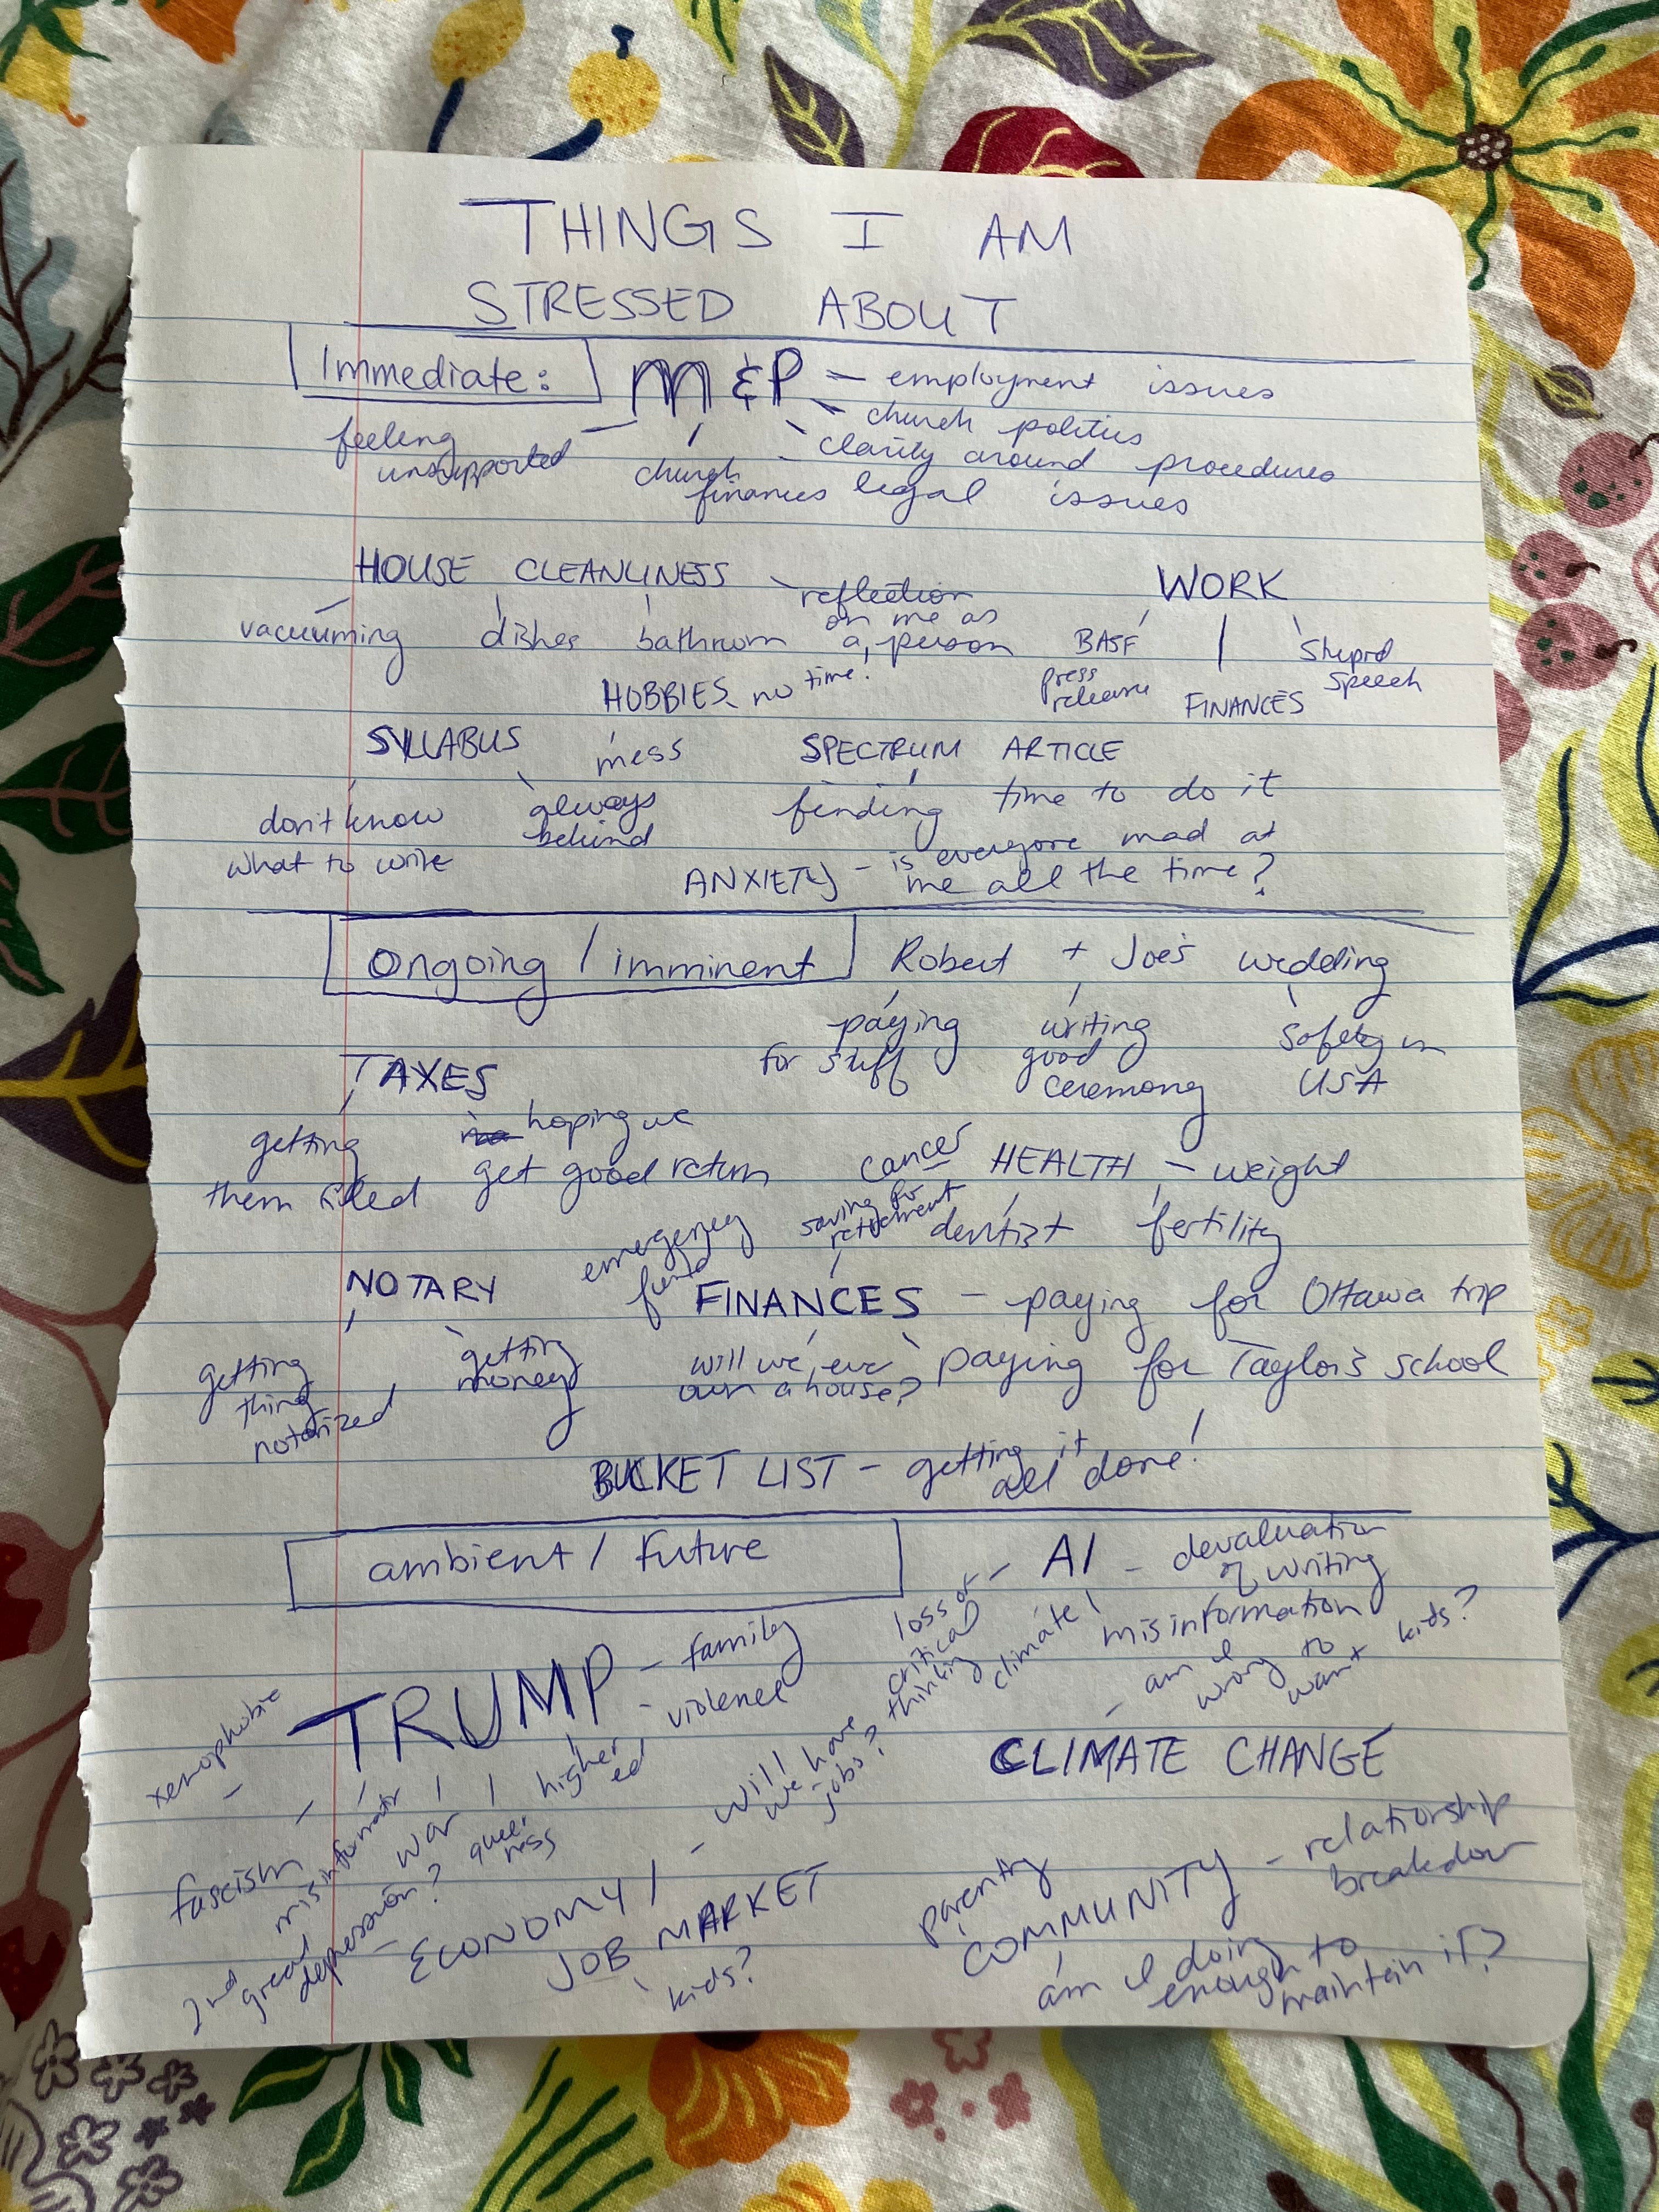 THINGS I AM
STRESSED ABOUT
Immediate: M & P – employment issues
– church politics
– clarity around procedures
legal issues
feeling
unsupported
church
finances
HOUSE CLEANLINESS
vacuuming
dishes
bathroom
reflection
on me as
a person
WORK
BASF
press
release
FINANCES
Stupid
speech
HOBBIES – no time!
mess
SYLLABUS
don't know
what to write
always
behind
SPECTRUM ARTICLE
finding time to do it
ANXIETY – is everyone mad at
me all the time?
Ongoing / imminent
Robert + Joe's wedding
paying
for stuff
writing
good
ceremony
safety in
USA
TAXES
getting
them filed
hoping we
get good return
HEALTH – weight
cancer
dentist
fertility
NOTARY
getting
thing
notarized
getting
money
FINANCES – paying for Ottawa trip
emergency
fund
saving for
retirement
will we ever
own a house?
paying for Taylor's school
BUCKET LIST – getting it
all done!
ambient / future
AI – devaluation
of writing
misinformation
loss of
critical
thinking
climate!
TRUMP – family
– violence
xenophobia
fascism
misinformatn
war
queer
ness
higher
ed
CLIMATE CHANGE
– am I
wrong to
want kids?
ECONOMY /
JOB MARKET
– will
we have
jobs?
2nd
great
depression?
kids?
COMMUNITY – relationship
breakdown
parenting
am I doing
enough to
maintain it?